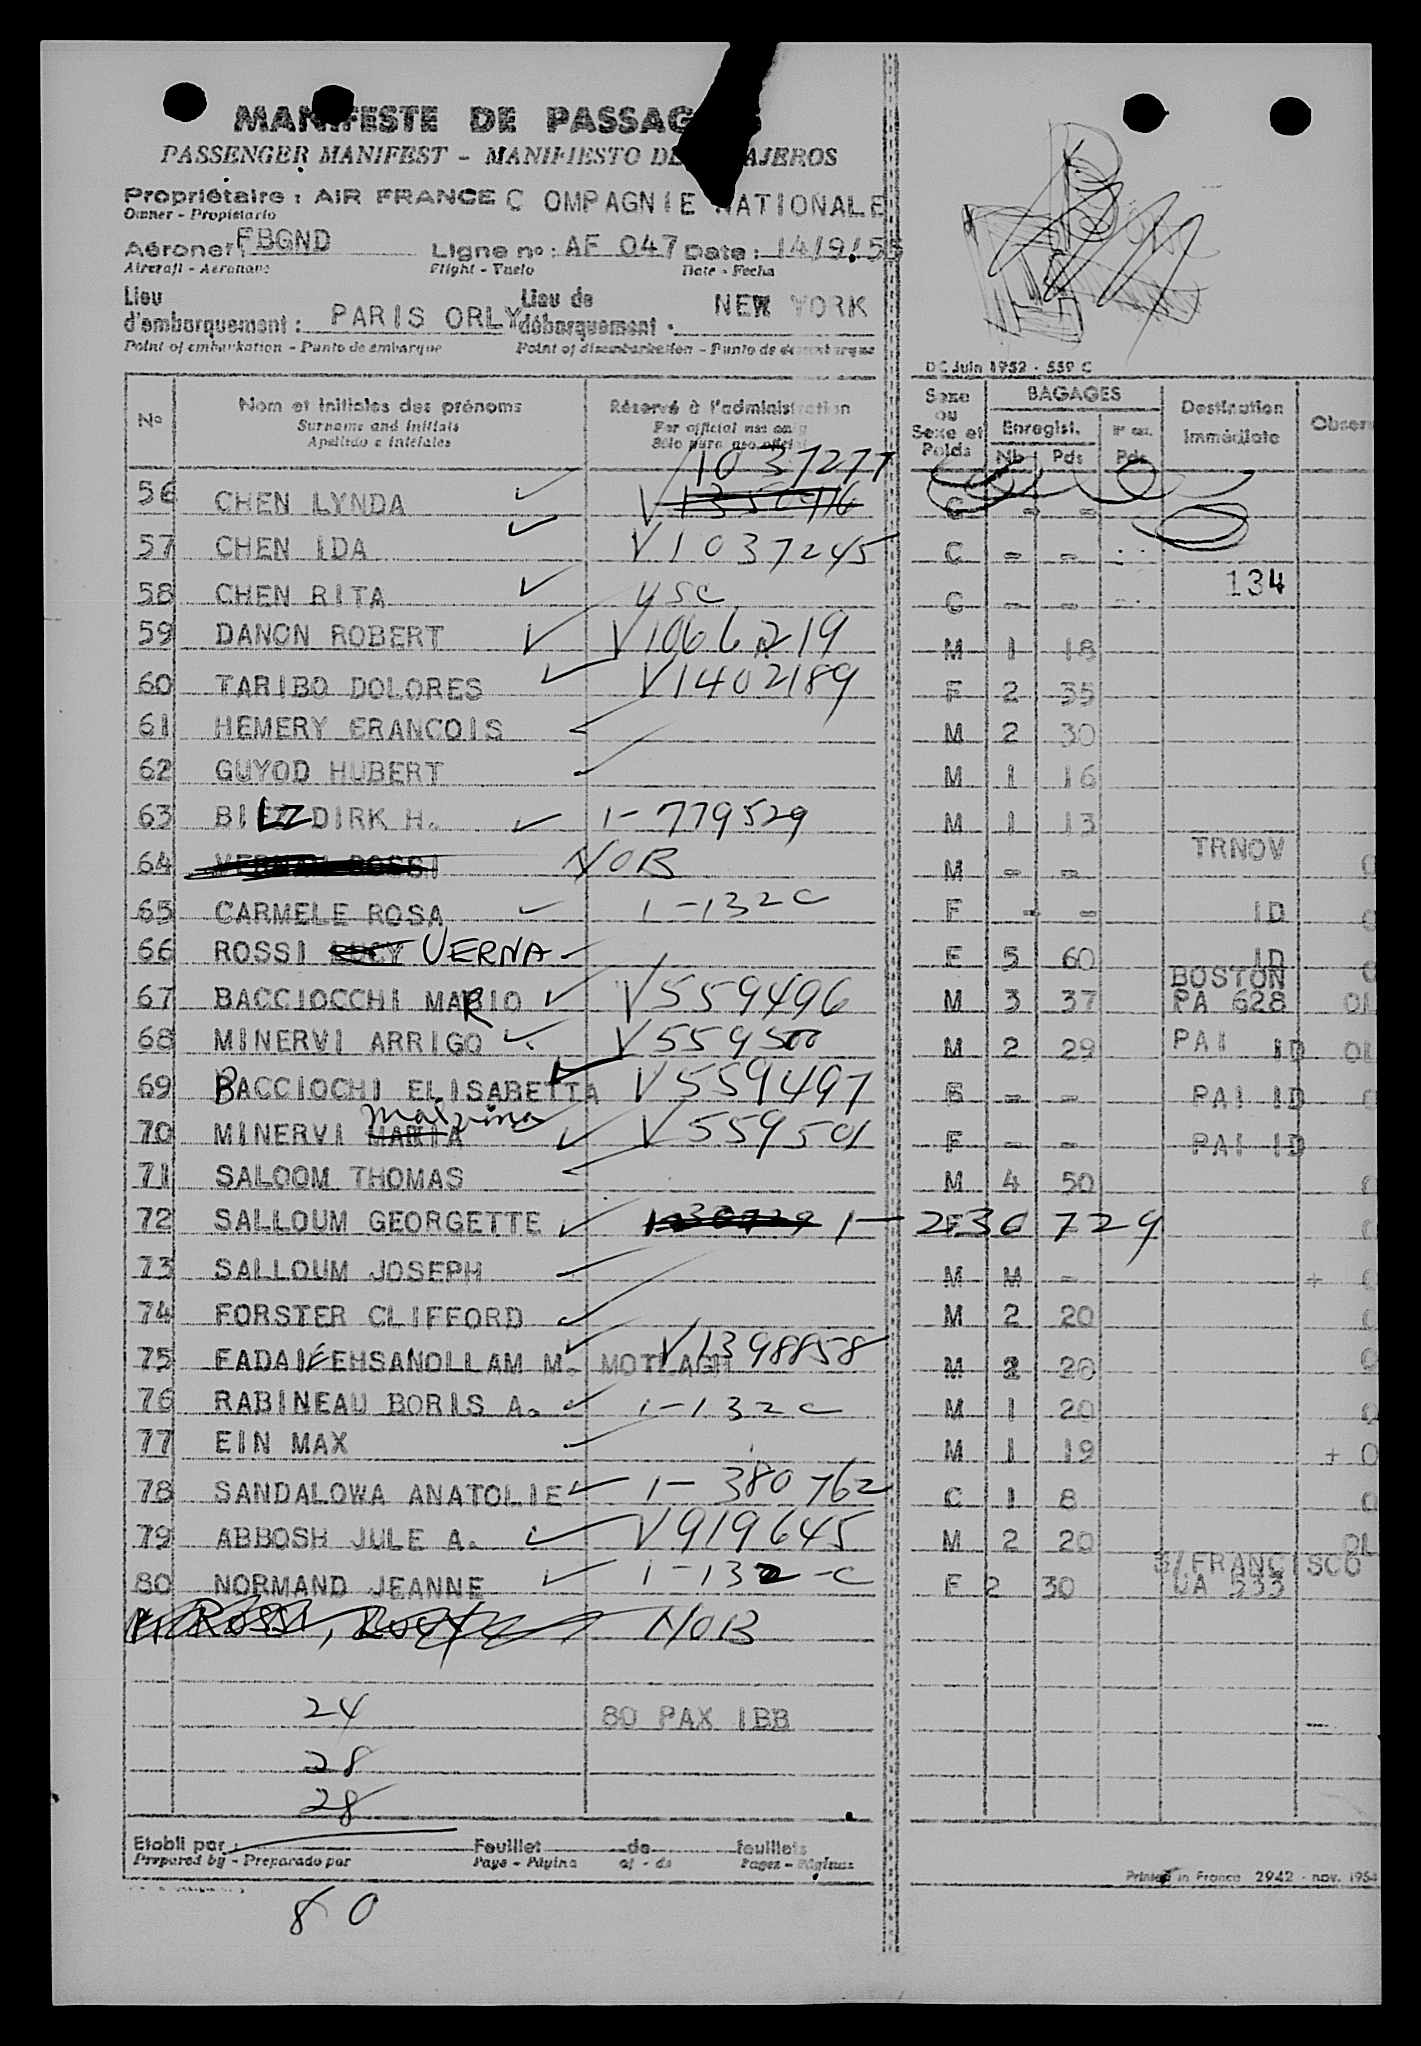 MANIFESTE DE PASSAG
PASSENGER MANIFEST - MANIFIESTO DE AJEROS
Propriétaire : AIR FRANCE C OMPAGNIE NATIONALE
Owner - Propietario
Aéronef : FBGND Ligne no : AF 047 Date : 14/9/55
Aircraft - Aeronave Flight - Vuelo Date - Fecha
Lieu d'embarquement : PARIS ORLY Lieu de débarquement : NEW YORK
Point of embarkation - Punto de embarque Point of disembarkation - Punto de desembarque
DC Juin 1952 - 559 C
No Nom et initiales des prénoms Réservé à l'administration Sexe ou Sexe et Poids BAGAGES Destination immédiate Observ
Surname and initials For official use only Enregist. Nb Pds Pds
Apellido e iniciales Sólo para uso oficial
1037277
56 CHEN LYNDA V 1350916 C - -
57 CHEN IDA V1037245 C - -
58 CHEN RITA USC C - - 134
59 DANON ROBERT V1066219 M 1 18
60 TARIBO DOLORES V1402189 F 2 35
61 HEMERY FRANCOIS M 2 30
62 GUYOD HUBERT M 1 16
63 BILZ DIRK H. 1-779529 M 1 13
64 ROSSI NOB M - - TRNOV
65 CARMELE ROSA 1-132C F - - ID
66 ROSSI LUCY VERNA F 5 60 ID
67 BACCIOCCHI MARIO V559496 M 3 37 BOSTON PA 628 OL
68 MINERVI ARRIGO V559500 M 2 29 PAI ID OL
69 BACCIOCHI ELISABETTA V559497 F - - PAI ID
70 MINERVI MARIA Malvina V559501 F - - PAI ID
71 SALOOM THOMAS M 4 50
72 SALLOUM GEORGETTE 1-230729
73 SALLOUM JOSEPH M M - +
74 FORSTER CLIFFORD M 2 20
75 FADAIE EHSANOLLAM M. MOTLAGH V1398858 M 2 20
76 RABINEAU BORIS A. 1-132C M 1 20
77 EIN MAX M 1 19 + O
78 SANDALOWA ANATOLIE 1-380762 C 1 8
79 ABBOSH JULE A. V919645 M 2 20 OL
80 NORMAND JEANNE 1-132-C F 2 30 S/FRANCISCO UA 533
ROSSI, Lucy NOB
24 80 PAX IBB
28
28
Etabli par : Feuillet de feuillets
Prepared by - Preparado por Page - Página of - de Pages - Páginas
Printed in France 2942 - nov. 1954
80